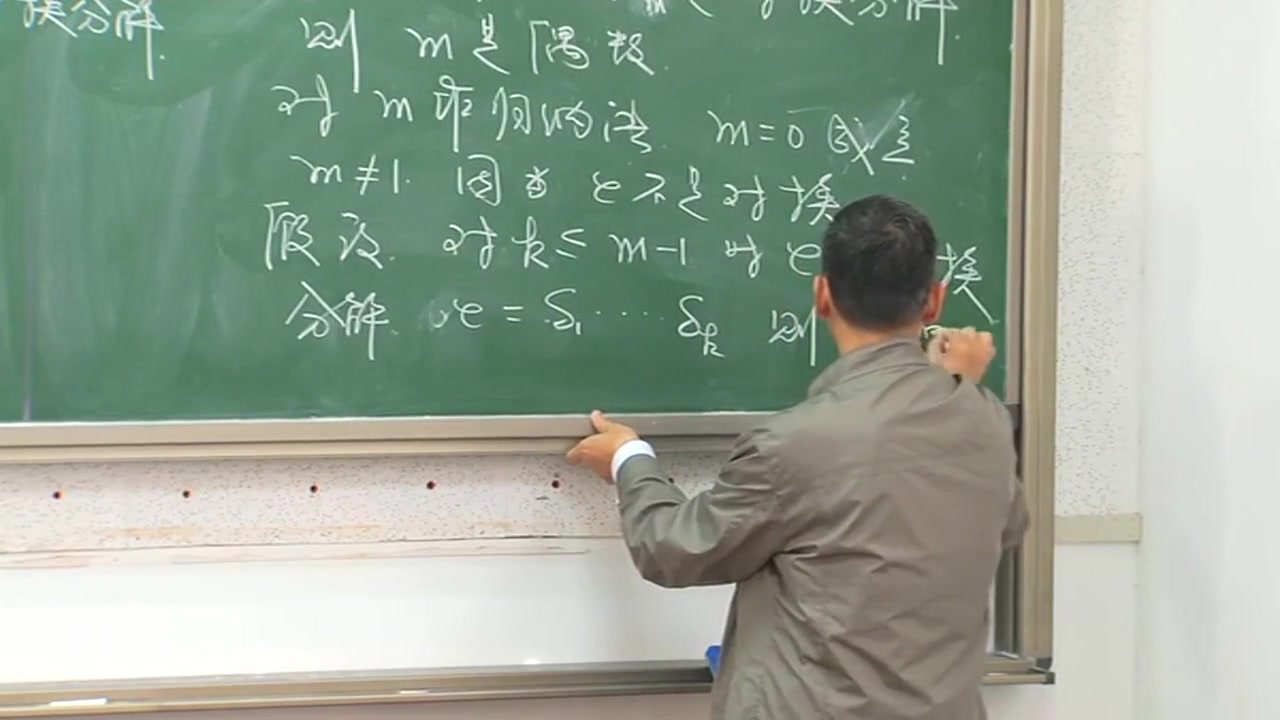 换分解 m 对换分解.
则 m是偶数.
对 m 作归纳法 m=0 成立
m≠1. 因为 e不是对换
假设. 对k≤m-1 时 e 换
分解. e=δ₁····δₖ 则